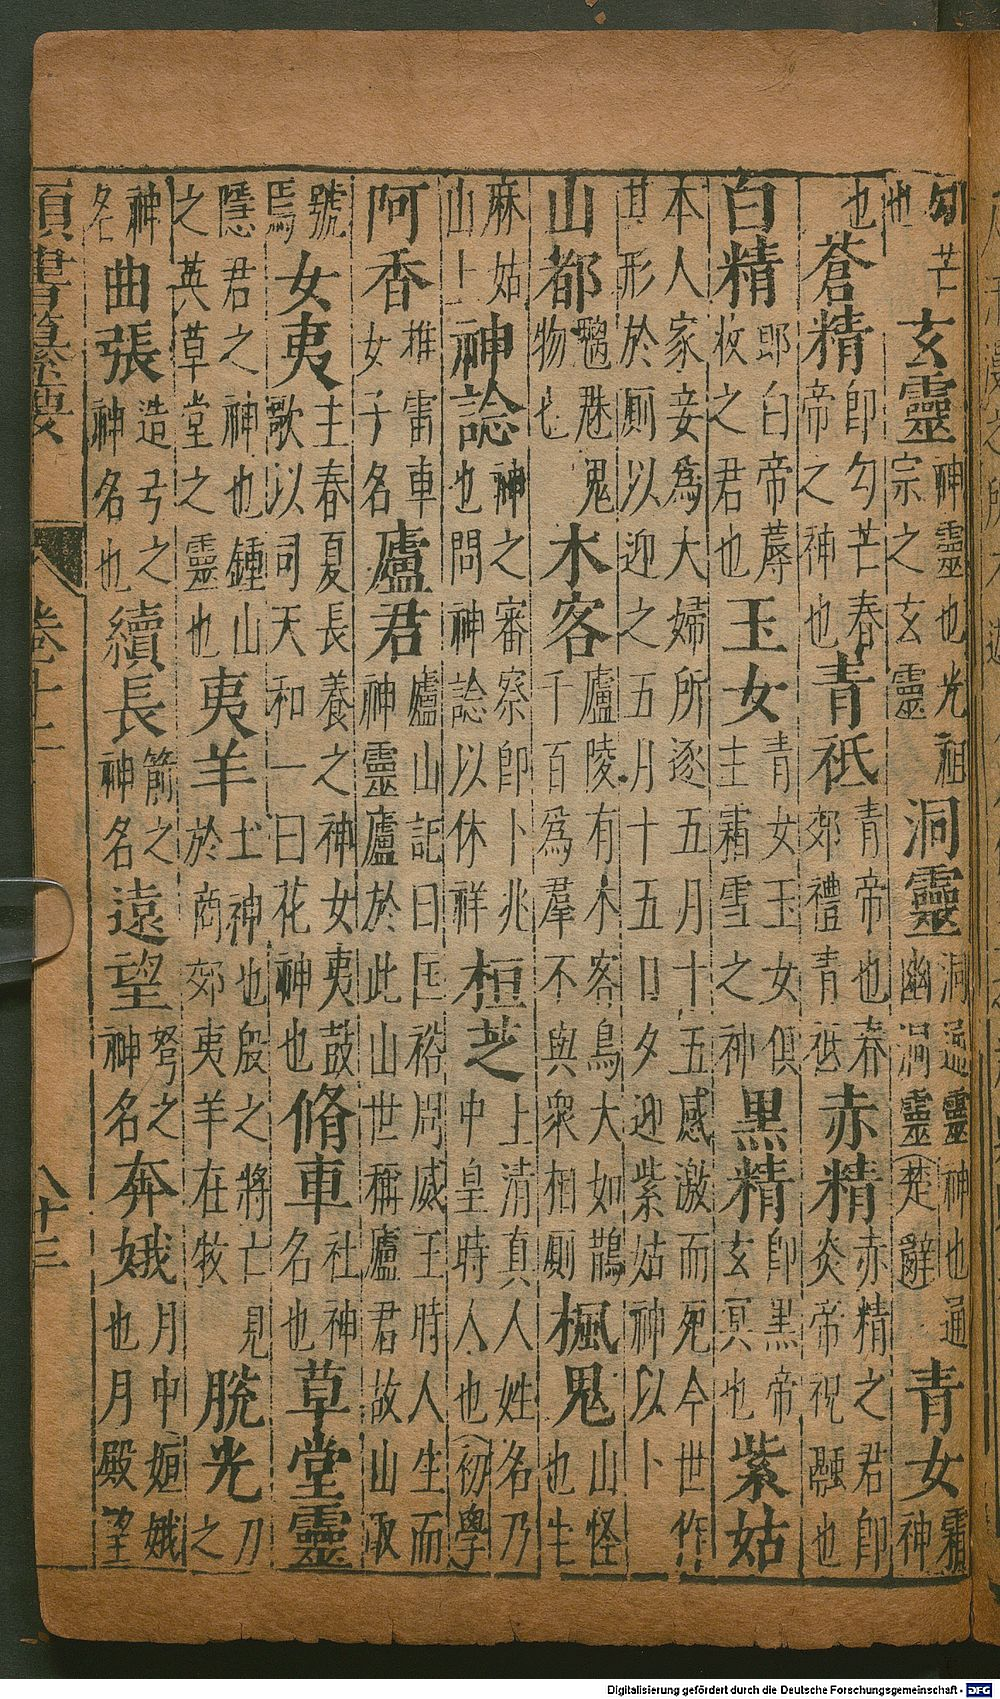 勾芒也玄靈神靈也光祖宗之玄靈洞靈洞遥靈神也通幽洞靈（楚辭青女霜神
也蒼精即勾芒春帝之神也青祇青帝也春郊禮青祇赤精赤精之君即炎帝祝融也
白精即白帝蓐收之君也玉女青女玉女俱主霜雪之神黑精即黑帝玄冥也紫姑
本人家妾為大婦所逐五月十五感激而死今世作其形於厠以迎之五月十五日夕迎紫姑神以卜
山都魑魅鬼物也木客廬陵有木客鳥大如鵲千百為羣不與衆相厠楓鬼山怪也生
麻姑山上神諗神之審察即卜兆也問神諗以休祥桓芝上清真人姓名乃中皇時人也（初學
阿香推雷車女子名廬君廬山記曰匡裕周威王時人生而神靈廬於此山世稱廬君故山取
號焉女夷主春夏長養之神女夷鼓歌以司天和一曰花神也脩車社神名也草堂靈
隱君之神也鍾山之英草堂之靈也夷羊土神也殷之將亡見於商郊夷羊在牧脫光刀之
神名曲張造弓之神名也續長箭之神名遠望弩之神名奔娥月中姮娥也月殿望
類書纂要 卷十二 八十三
Digitalisierung gefördert durch die Deutsche Forschungsgemeinschaft - DFG